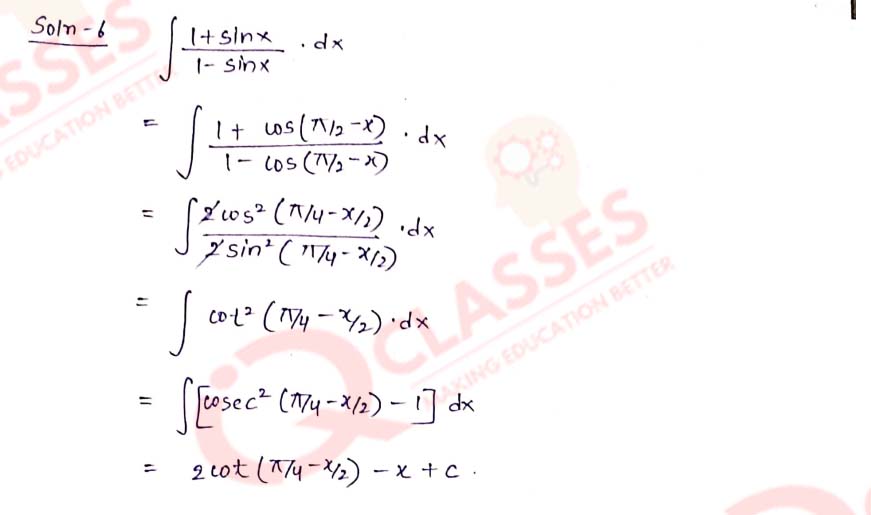 Soln-6 ∫ (1+sinx)/(1-sinx) . dx
= ∫ (1+ cos(π/2-x))/(1- cos(π/2-x)) . dx
= ∫ (2cos²(π/4-x/2))/(2sin²(π/4-x/2)) .dx
= ∫ cot²(π/4-x/2).dx
= ∫[cosec²(π/4-x/2)-1] dx
= 2cot(π/4-x/2) -x+c.
CLASSES
MAKING EDUCATION BETTER
SSES
G EDUCATION BETTER